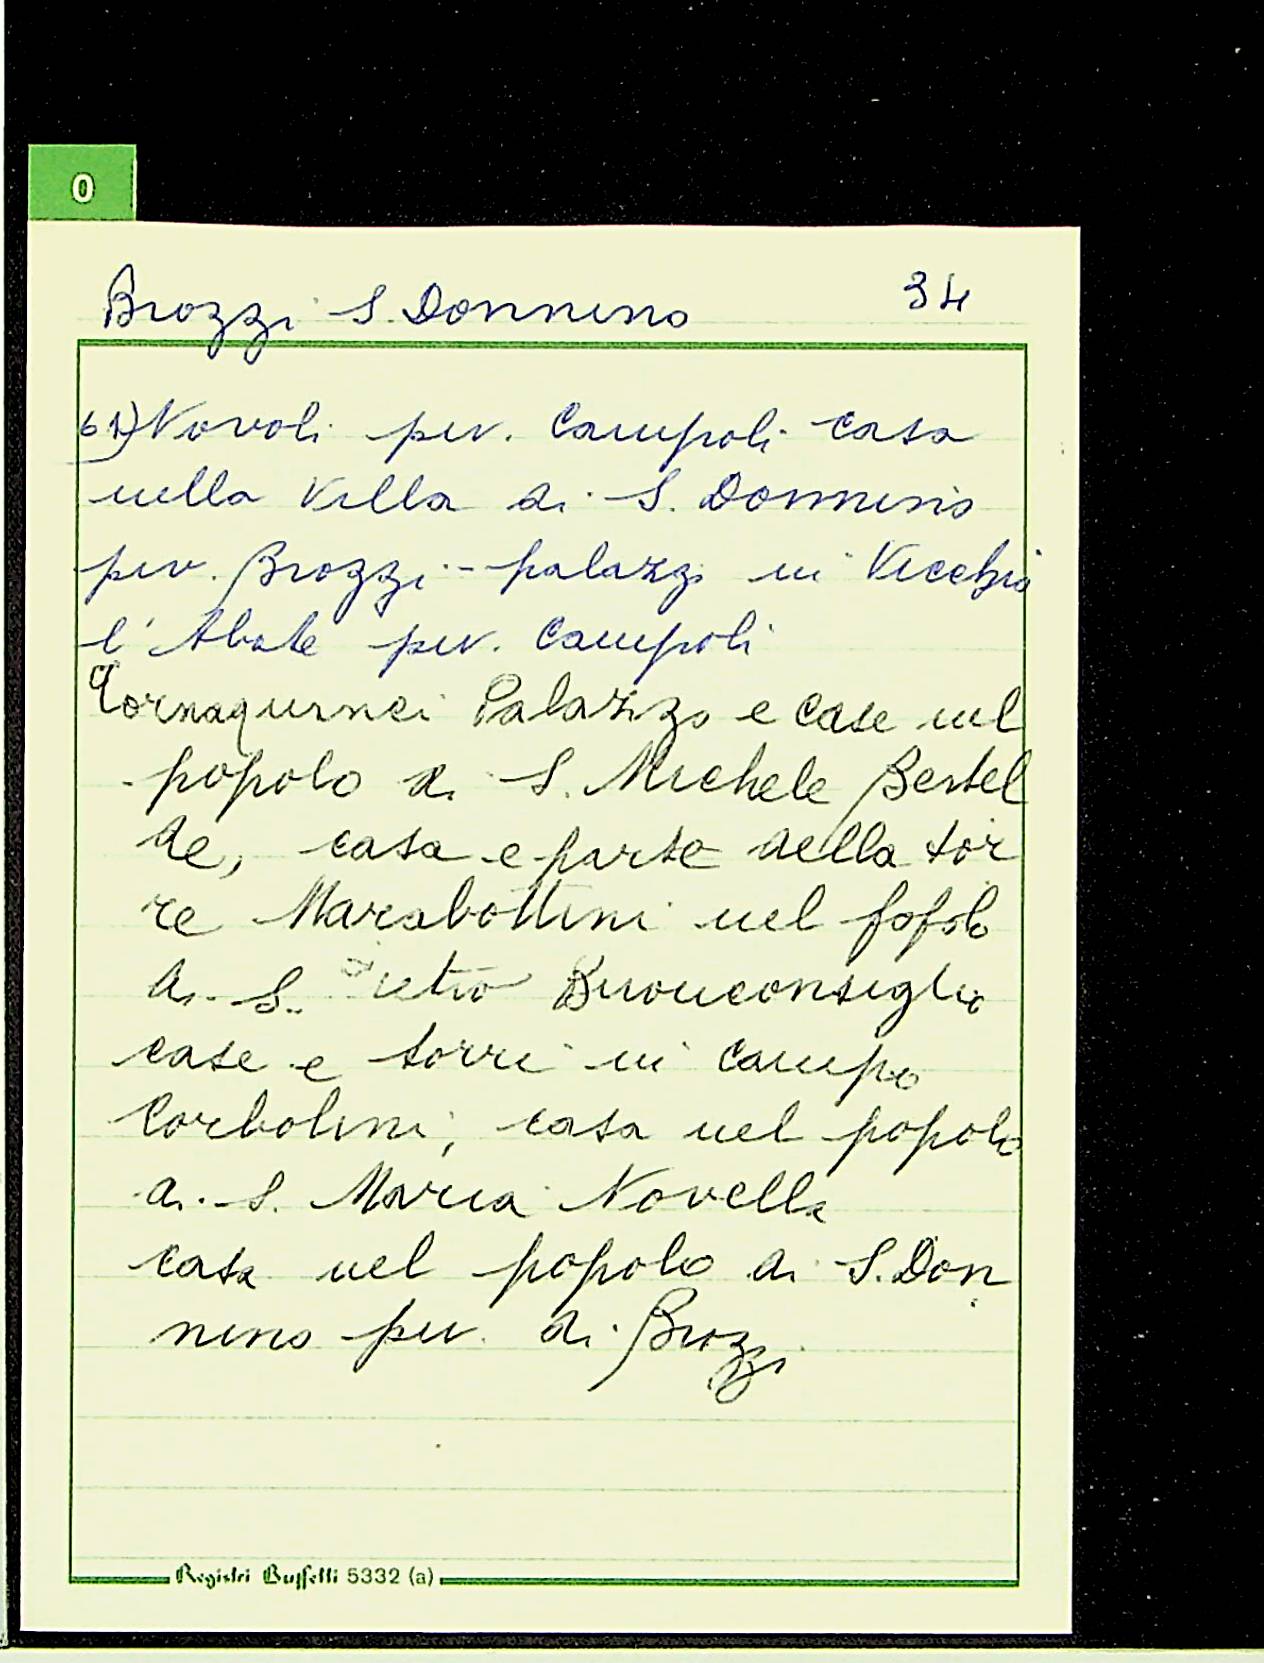 0
Brozzi S. Donnino 34
61) Novoli piv. Campoli casa
nella Villa di S. Donnino
piv. Brozzi - palazzo in Vicchio
l'Abate piv. Campoli
Tornaquinci Palazzo e case nel
popolo di S. Michele Bertel
de, casa e parte della tor
re Marabottini nel popolo
di S. Pietro Buonconsiglio
case e torri in Campo
Corbolini, casa nel popolo
di S. Maria Novella
casa nel popolo di S. Don
nino piv. di Brozzi
Registri Buffetti 5332 (a)